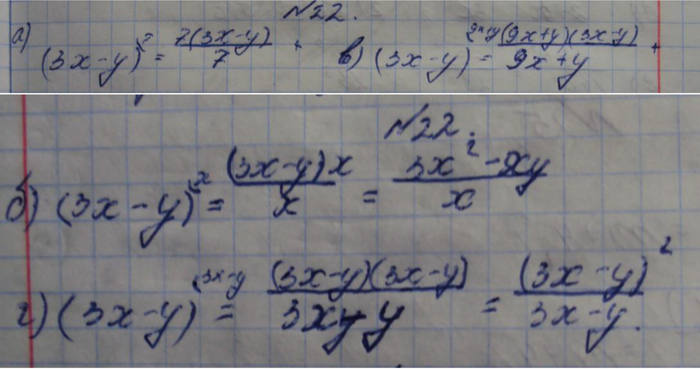 №22.
а) (3x-y)^7 = 7(3x-y)/7 + в) (3x-y)^9x+y = (9x+y)(3x-y)/9x+y +
№22.
б) (3x-y)^x = (3x-y)x/x = 3x²-xy/x
г) (3x-y)^(3x-y = (3x-y)(3x-y)/3x-y = (3x-y)²/3x-y.